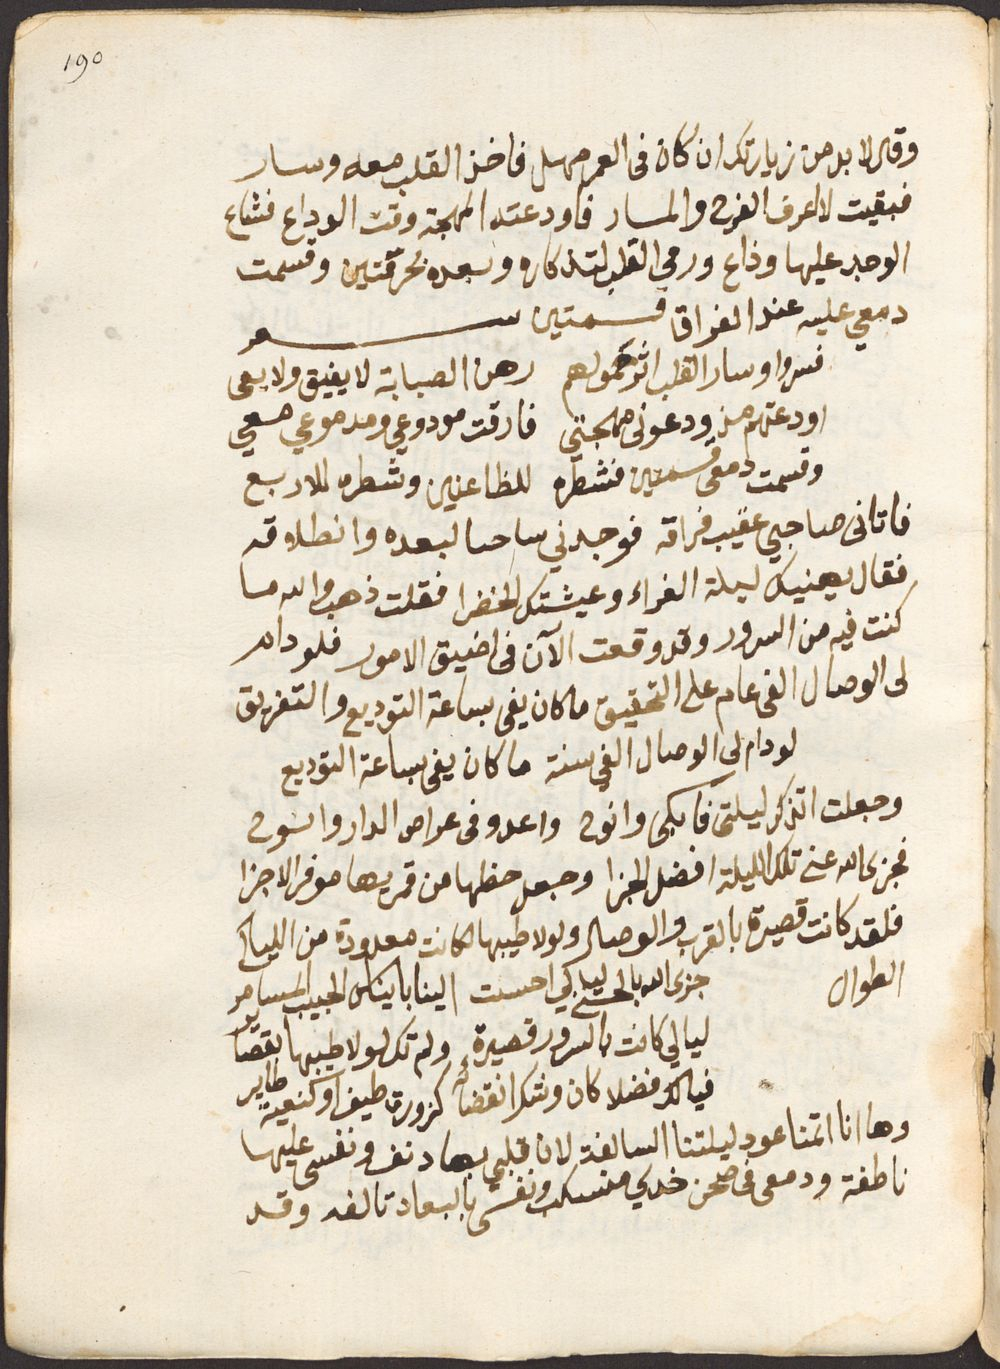 190
وقال لابد من زيارتك ان كان فى العمر مهل فاخذ القلب معه وسار
فبقيت لااعرف القرى والمسار فاودعته المهجة وقت الوداع فشاع
الوجد عليها وذاع ورمى القلب لتذكاره وبعده بحرقتين وقسمت
دمعي عليه عند الفراق قسمتين شعر
فسروا وسار القلب اثر حمولهم رهن الصبابة لا يفيق ولا يعى
اودعتهم من ودعونى مهجتي فارقت مودوعي ومدموعي معي
وقسمت دمعى قسمتين فشطره للظاعنين وشطره للاربع
فاتانى صاحبي عقيب فراقه فوجدني ساحا لبعده وانطلاقه
فقال يهنيك ليلة الغراء وعيشتك الخضرا فقلت ذهب والله ما
كنت فيه من السرور وقد وقعت الآن فى اضيق الامور فلو دام
لى الوصال الفى عام على التحقيق ما كان يفى بساعة التوديع والتفريق
لو دام لى الوصال الفي سنة ما كان يفى بساعة التوديع
وجعلت اتذكر ليلتى فابكى وانوح واعدو فى عراص الدار واسوح
فجزى الله عنى تلك الليلة افضل الجزا وجعل حظها من قربها موفر الاجزا
فلقد كانت قصيرة بالقرب والوصال ولولا طيبها لكانت معدودة من الليالى
الطوال جزى الله بالحسنى ليالى احسنت الينا بايناس الحبيب المسامر
ليالي كانت بالسرور قصيرة ولم تك لولا طيبها بقصاير
فيالك فضلا كان وشك انقضائه كزورة طيف او كنغبة طاير
وها انا اتمنا عود ليلتنا السالفة لان قلبي بها دنف ونفسى عليها
ناطفة ودمعى فى صحن خدي منسكب ونفسى بالبعاد تالفه وقد